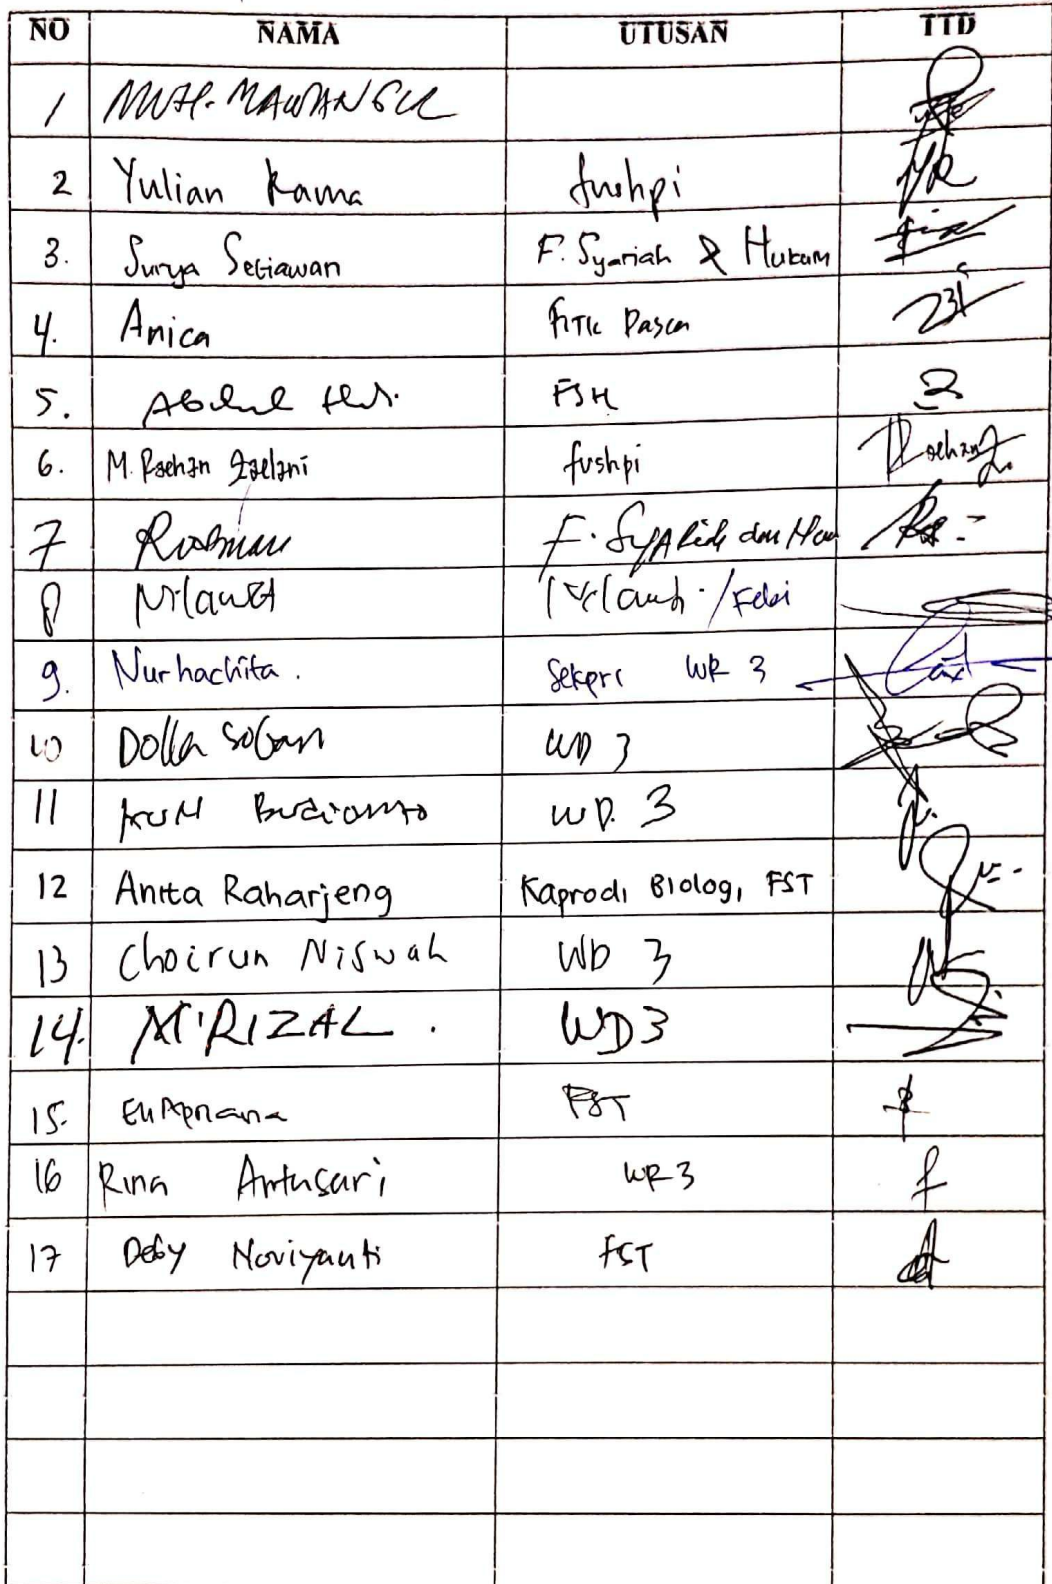 NO NAMA UTUSAN TTD
1 MUH. MAWANGIR
2 Yulian Rama fushpi
3. Surya Setiawan F. Syariah & Hukum
4. Anica FITK Pasca
5. Abdul FSH
6. M. Raehan Zaelani fushpi
7 Rusmian F. SyARiah dan
8 Nilawati /Febi
9. Nurhachita. Sekpri WR 3
10 Dolla Sobari WD 3
11 WD. 3
12 Anita Raharjeng Kaprodi Biologi, FST
13 Choirun Niswah WD 3
14. M. RIZAL. WD3
15. FST
16 Rina Antasari WR 3
17 Deby Noviyanti FST